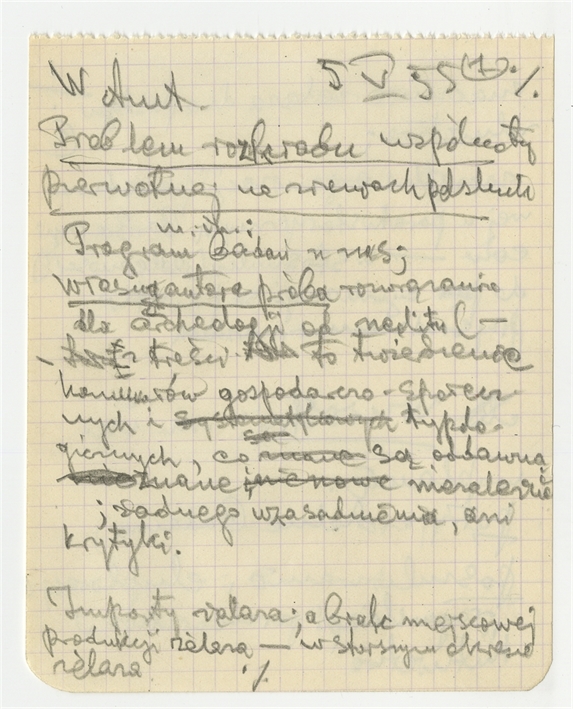 W Ant. 5 V 55 (1). ·/.
Problem rozkładu wspólnoty
pierwotnej na ziemiach polskich
m.in.:
Program badań n
własna autora próba rozwiązania
dla archeologji od neolitu (—
z treści to twierdzenie
gospodarczo-społecz-
nych i typolo-
gicznych, co są oddawna
znane
; żadnego uzasadnienia, ani
krytyki.
Importy żelaza; a brak miejscowej
produkcji żelaza — w starszym okresie
żelaza ·/.